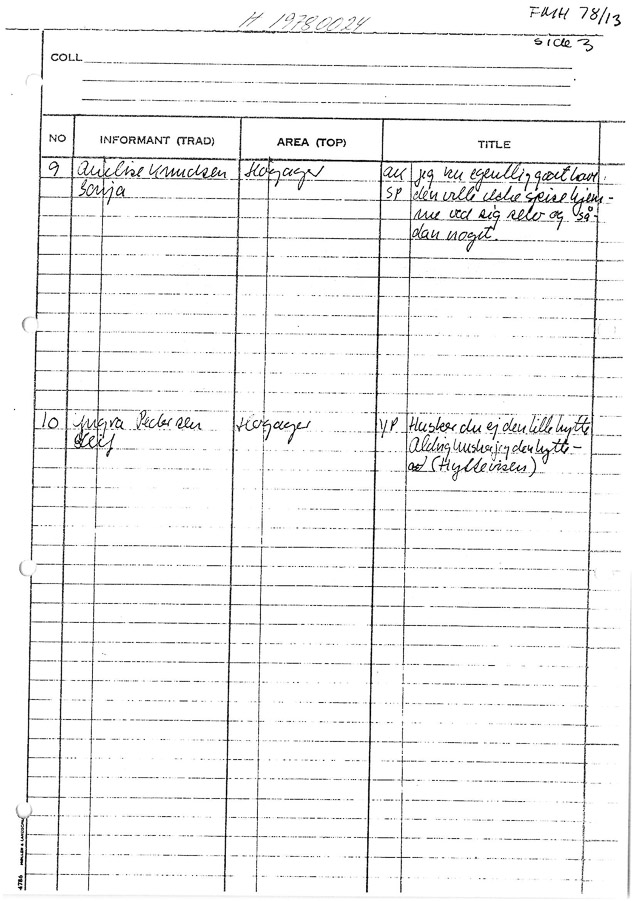 H 19780024
FMH 78/13
side 3
COLL
NO INFORMANT (TRAD) AREA (TOP) TITLE
9 Anelise Knudsen Hogager AK jeg ku egentlig godt have
Sonja SP den ville ikke spise hjem-
me ved sig selv og så-
dan noget.
10 Yngva Pedersen Hogager YP Husker du ej den lille hytte
Leif Aldrig husker jeg den hytte-
(Hyttevisen)
4786